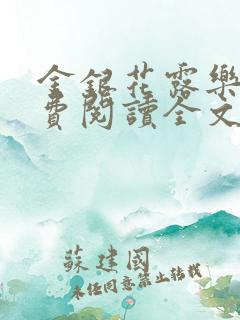 金銀花露樂
費閱讀全文
蘇建國
未任同意禁止轉載